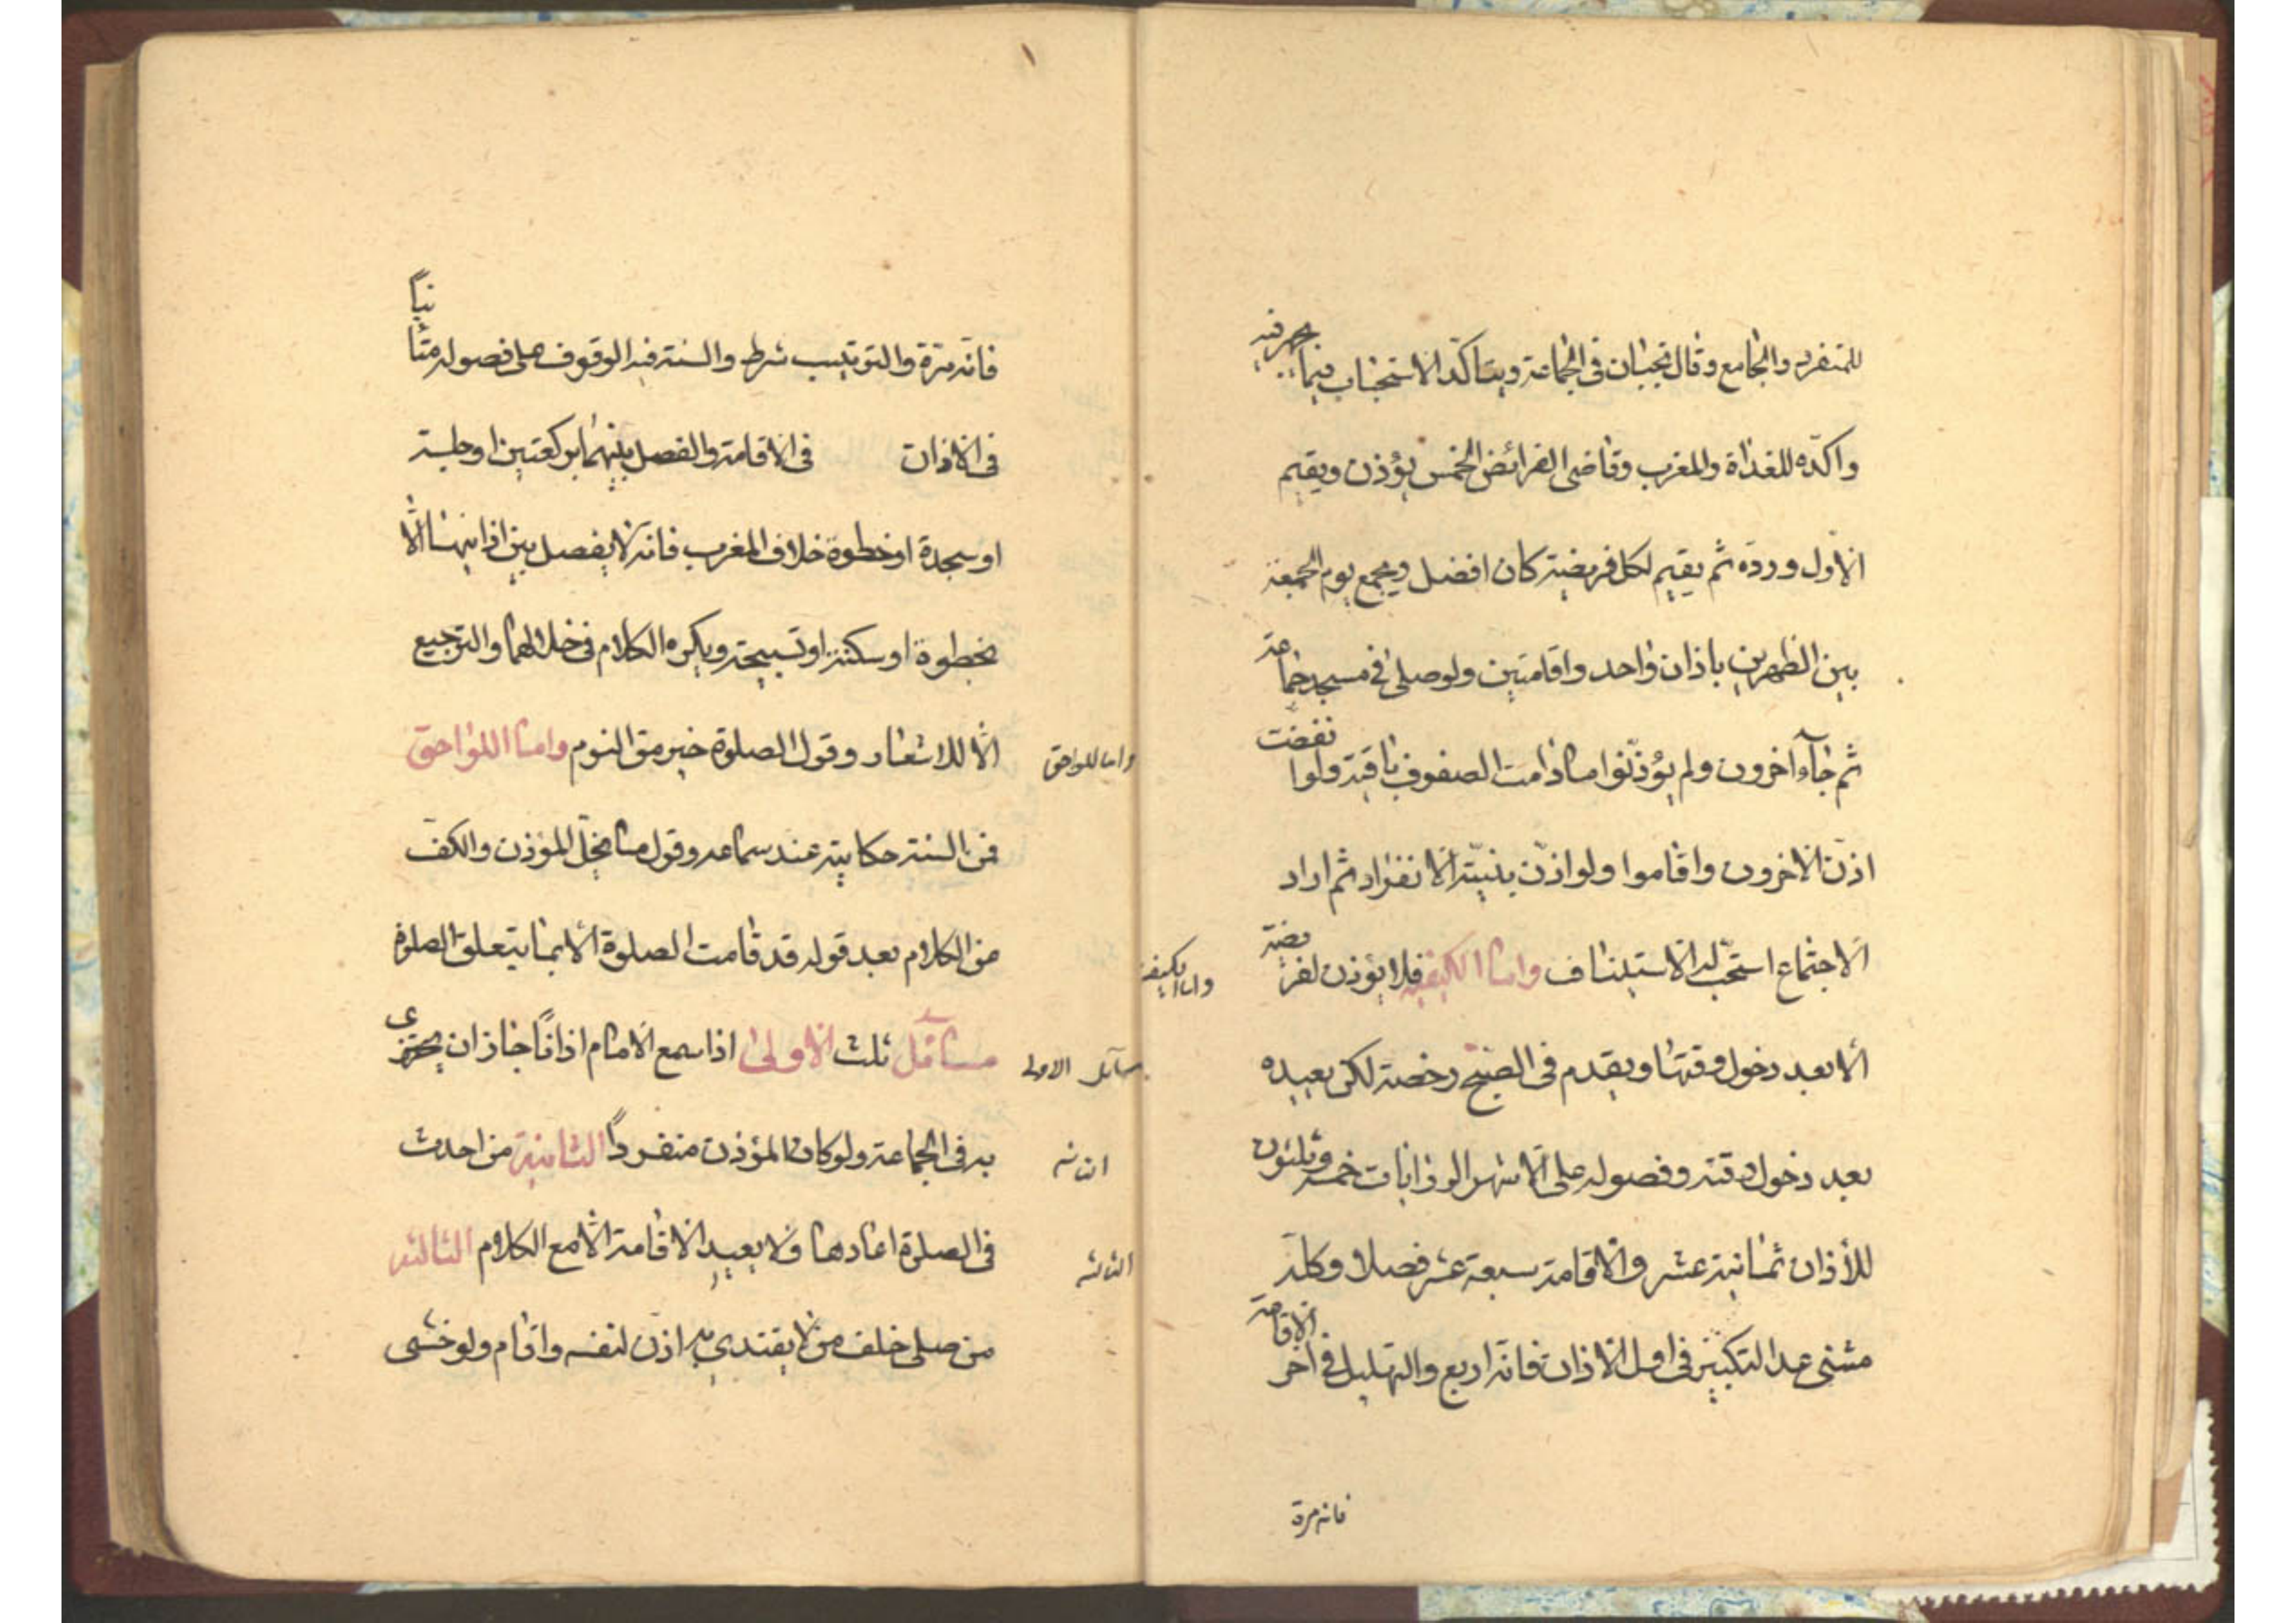 للمنفرد والجامع وقال يجبان فى الجماعة ويتاكد الاستحباب فيما يجهر فيه
واكده للغداة والمغرب وقاضى الفرائض الخمس يؤذن ويقيم
الاول ورده ثم يقيم لكل فريضة كان افضل ويجمع يوم الجمعة
بين الظهرين باذان واحد واقامتين ولو صلى فى مسجد جماعة
ثم جاء آخرون ولم يؤذنوا ما دامت الصفوف باقية ولو انفضت
اذن الاخرون واقاموا ولو اذن بنية الانفراد ثم اراد
الاجتماع استحب له الاستيناف واما الكيفيه فلا يؤذن لفريضة
واما الكيفيه
الا بعد دخول وقتها ويقدم فى الصبح رخصة لكن يعيده
بعد دخول وقته وفصوله على الاشهر الروايات خمسة وثلثون
للأذان ثمانية عشر والاقامة سبعة عشر فصلا وكله
مثنى عدا التكبير فى اول الاذان فانه اربع والتهليل فى اخر الاقامة
فانه مرة
فانه مرة والترتيب شرط والسنة فيه الوقوف على فصوله متأنياً
فى الاذان فى الاقامة والفصل بينهما بركعتين او جلسة
او سجدة او خطوة خلاف المغرب فانه لا يفصل بين اذانيها الا
بخطوة او سكتة او تسبيحة ويكره الكلام فى خلالهما والترجيع
الا للاشعار وقول الصلوة خير من النوم واما اللواحق
واما للواحق
فمن السنة حكايته عند سماعه وقول ما يخل المؤذن والكف
من الكلام بعد قوله قد قامت الصلوة الا بما يتعلق الصلوة
مسائل ثلث الاولى اذا سمع الامام اذاناً جاز ان يجتزى
مسآئل الاولى
به فى الجماعة ولو كان المؤذن منفرداً الثانية من احدث
الثانيه
فى الصلوة اعادها ولا يعيد الاقامة الا مع الكلام الثالثه
الثالثه
من صلى خلف من لا يقتدي به اذن لنفسه واقام ولو خشى